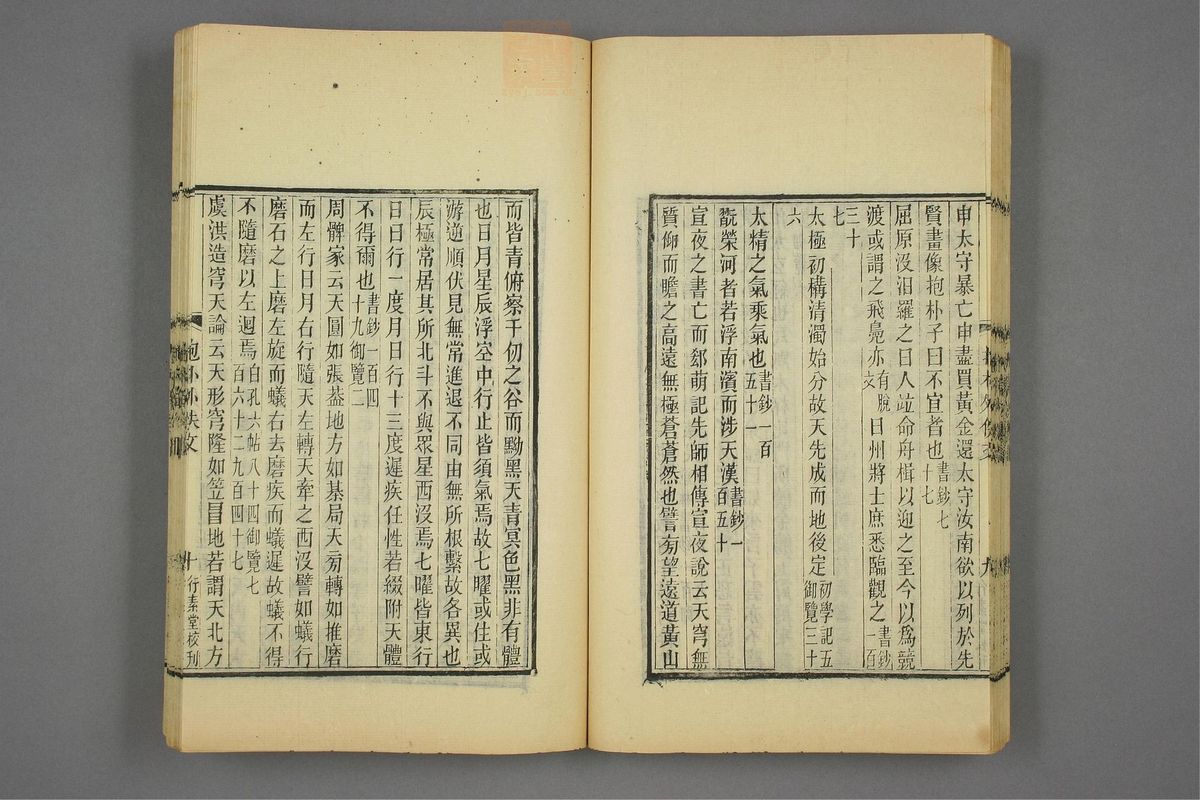 申太守暴亡申盡買黃金還太守汝南欲以列於先
賢畫像抱朴子曰不宜者也書鈔七十七
屈原沒汨羅之日人竝命舟楫以迎之至今以爲競
渡或謂之飛鳧亦有脫文日州將士庶悉臨觀之書鈔一百
三十七
太極初構清濁始分故天先成而地後定初學記五御覽三十
六
太精之氣乘氣也書鈔一百五十一
翫榮河者若浮南濱而涉天漢書鈔一百五十
宣夜之書亡而郄萌記先師相傳宣夜說云天穹無
質仰而瞻之高遠無極蒼蒼然也譬旁望遠道黃山
而皆青俯察千仞之谷而黝黑天青冥色黑非有體
也日月星辰浮空中行止皆須氣焉故七曜或住或
游逆順伏見無常進退不同由無所根繫故各異也
辰極常居其所北斗不與眾星西沒焉七曜皆東行
日日行一度月日行十三度遲疾任性若綴附天體
不得爾也書鈔一百四十九御覽二
周髀家云天圓如張葢地方如棊局天旁轉如推磨
而左行日月右行隨天左轉天牽之西沒譬如蟻行
磨石之上磨左旋而蟻右去磨疾而蟻遲故蟻不得
不隨磨以左迴焉白孔六帖八十四御覽七百六十二九百四十七
虞洪造穹天論云天形穹隆如笠冒地若謂天北方
抱朴外佚文
十
行素堂校刊